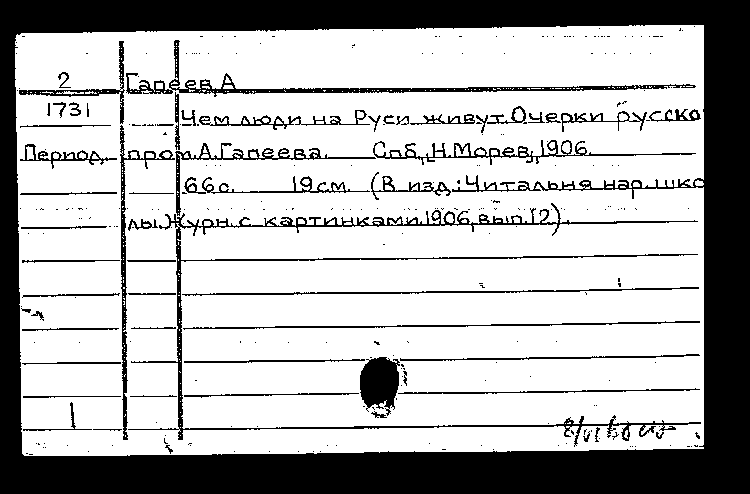 2 Гапеев, А
1731 Чем люди на Руси живут. Очерки русско
Период. пром. А. Гапеева. Спб., "Н. Морев", 1906.
66 с. 19 см. (В изд.: Читальня нар. шко
лы. Журн. с картинками. 1906, вып. 12).